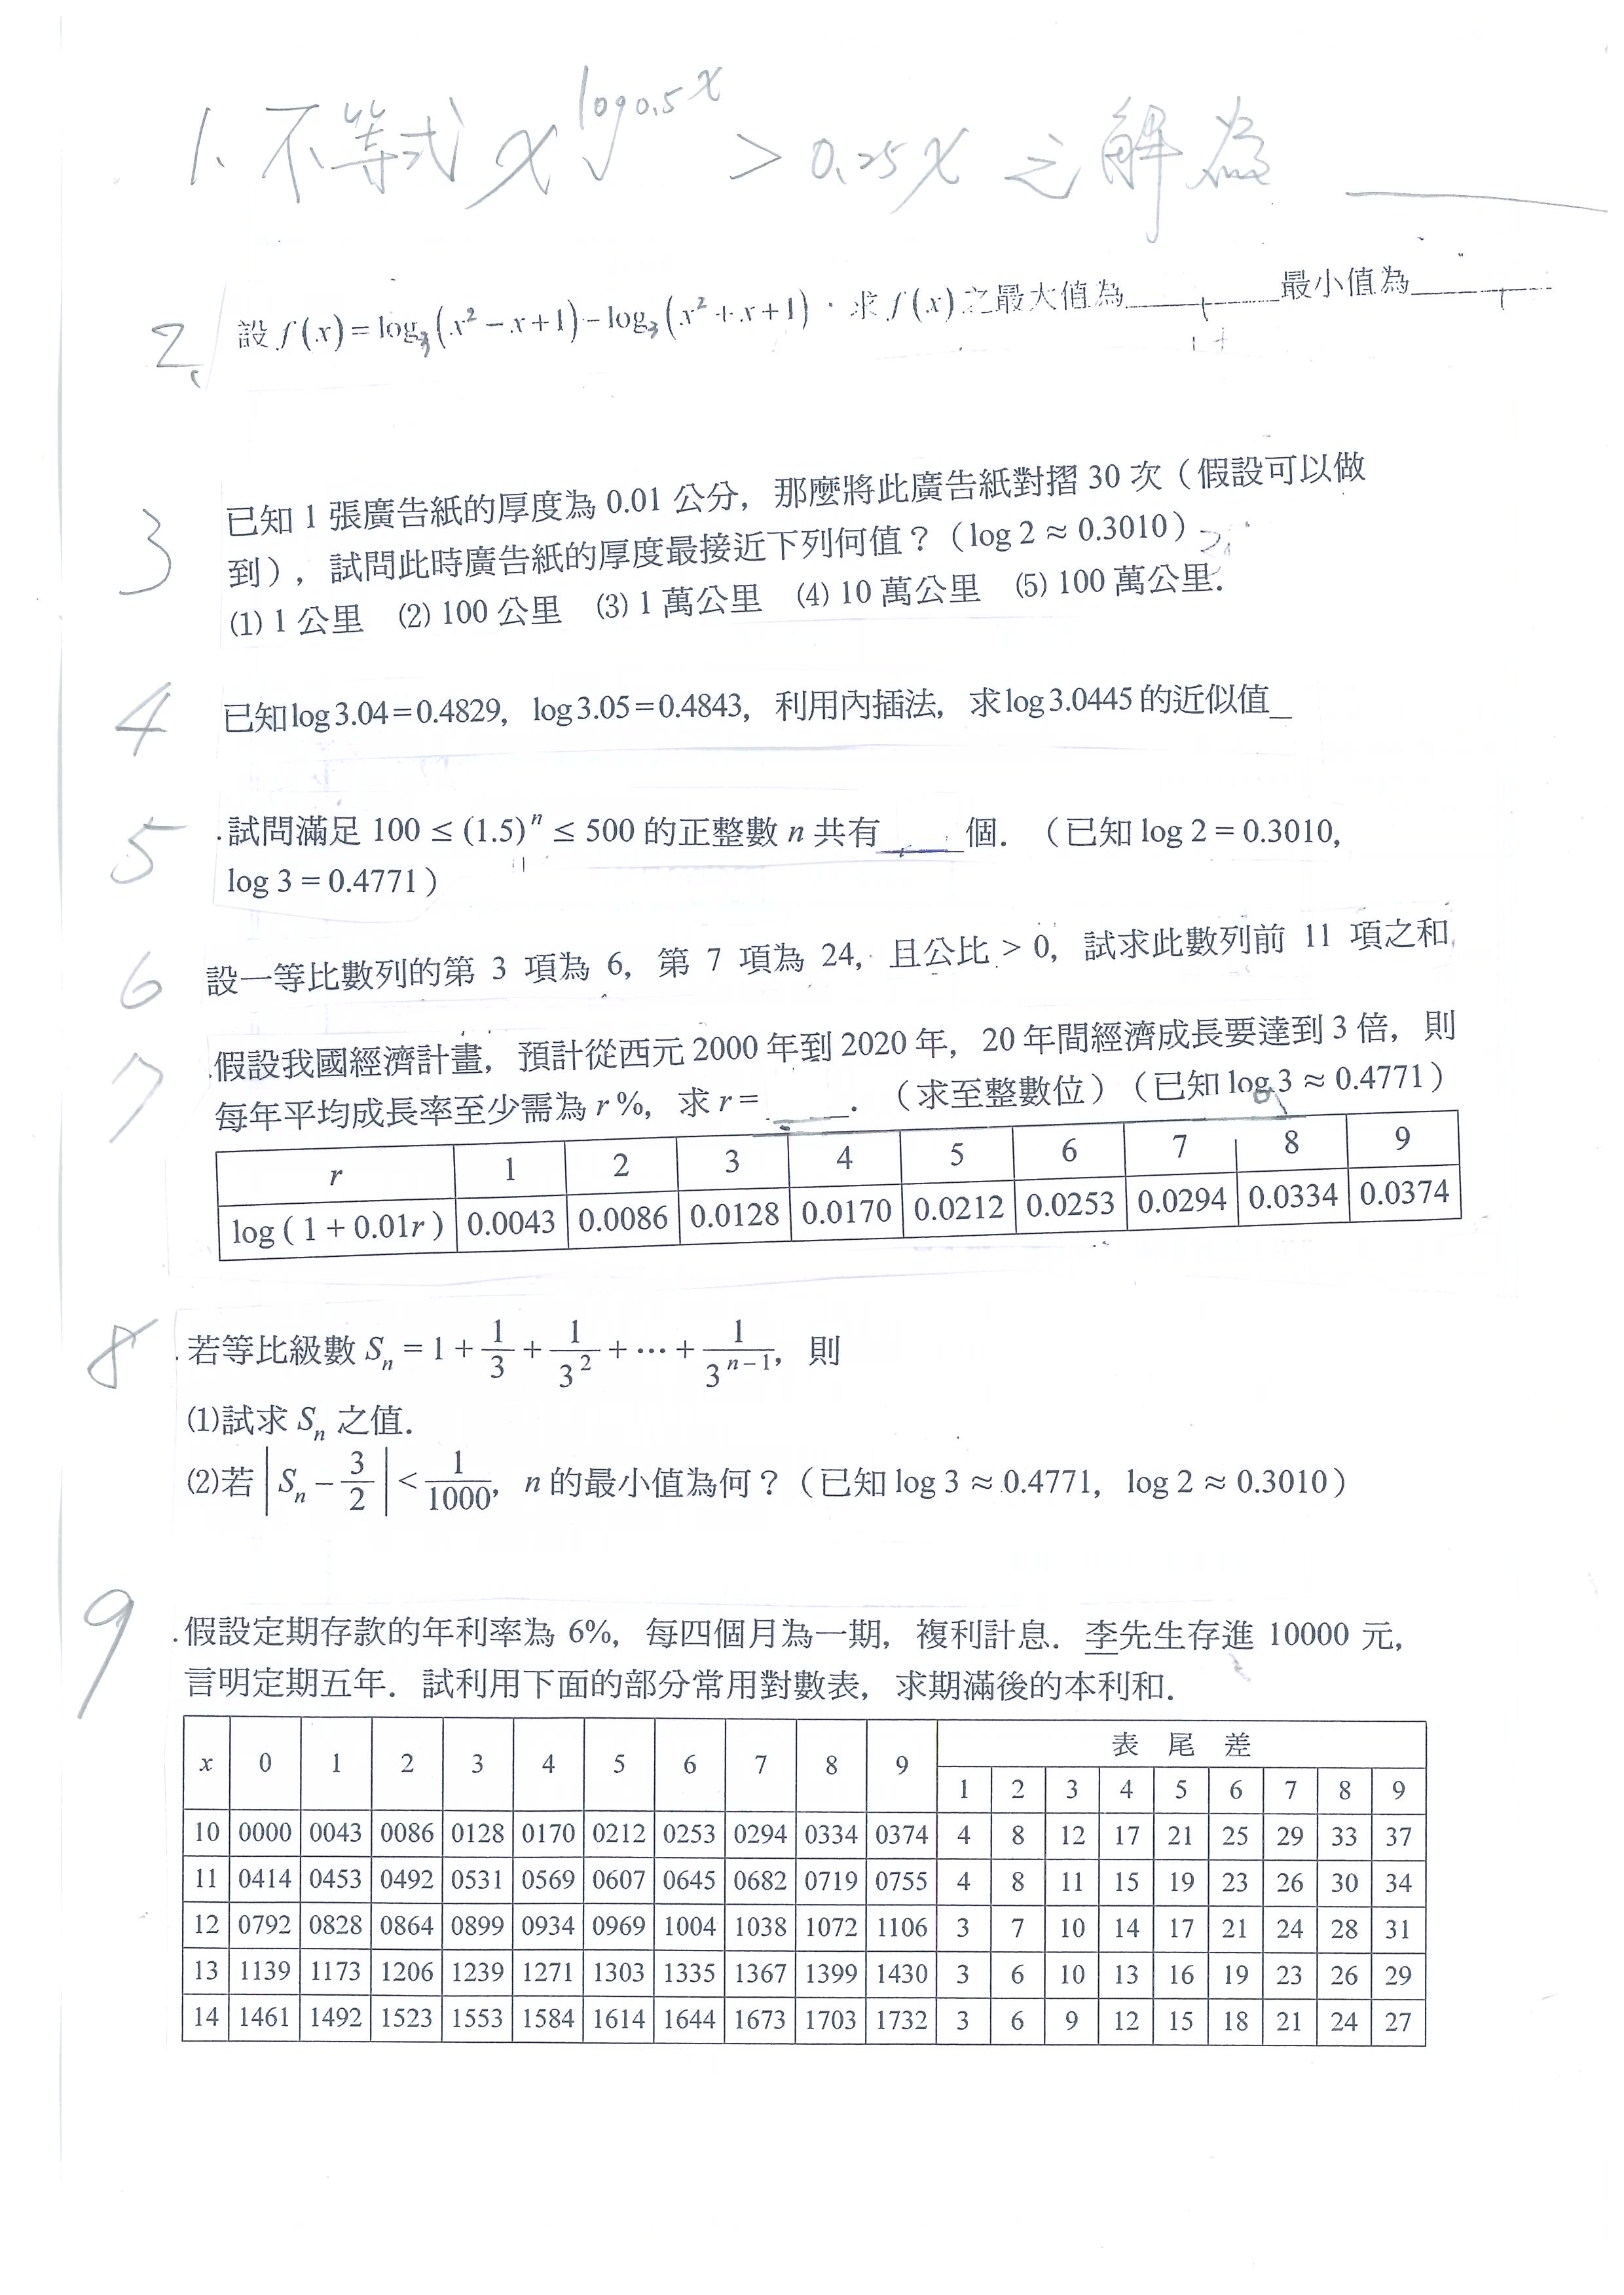 1. 不等式 x^{log_{0.5} x} > 0.25x 之解為 ______
2. 設 f(x) = log₃(x² − x + 1) − log₃(x² + x + 1)．求 f(x) 之最大值為______最小值為______
3 已知 1 張廣告紙的厚度為 0.01 公分，那麼將此廣告紙對摺 30 次（假設可以做
到），試問此時廣告紙的厚度最接近下列何值？（log 2 ≈ 0.3010）
(1) 1 公里 (2) 100 公里 (3) 1 萬公里 (4) 10 萬公里 (5) 100 萬公里．
4 已知 log 3.04 = 0.4829，log 3.05 = 0.4843，利用內插法，求 log 3.0445 的近似值_
5 .試問滿足 100 ≤ (1.5)ⁿ ≤ 500 的正整數 n 共有____個．（已知 log 2 = 0.3010,
log 3 = 0.4771）
6 設一等比數列的第 3 項為 6，第 7 項為 24，且公比 > 0，試求此數列前 11 項之和
7 .假設我國經濟計畫，預計從西元 2000 年到 2020 年，20 年間經濟成長要達到 3 倍，則
每年平均成長率至少需為 r %，求 r = ____．（求至整數位）（已知 log 3 ≈ 0.4771）
r 1 2 3 4 5 6 7 8 9
log ( 1 + 0.01r ) 0.0043 0.0086 0.0128 0.0170 0.0212 0.0253 0.0294 0.0334 0.0374
8 .若等比級數 Sₙ = 1 + 1/3 + 1/3² + ⋯ + 1/3ⁿ⁻¹，則
(1)試求 Sₙ 之值．
(2)若 |Sₙ − 3/2| < 1/1000，n 的最小值為何？（已知 log 3 ≈ 0.4771，log 2 ≈ 0.3010）
9 .假設定期存款的年利率為 6%，每四個月為一期，複利計息．李先生存進 10000 元，
言明定期五年．試利用下面的部分常用對數表，求期滿後的本利和．
x 0 1 2 3 4 5 6 7 8 9 表尾差
1 2 3 4 5 6 7 8 9
10 0000 0043 0086 0128 0170 0212 0253 0294 0334 0374 4 8 12 17 21 25 29 33 37
11 0414 0453 0492 0531 0569 0607 0645 0682 0719 0755 4 8 11 15 19 23 26 30 34
12 0792 0828 0864 0899 0934 0969 1004 1038 1072 1106 3 7 10 14 17 21 24 28 31
13 1139 1173 1206 1239 1271 1303 1335 1367 1399 1430 3 6 10 13 16 19 23 26 29
14 1461 1492 1523 1553 1584 1614 1644 1673 1703 1732 3 6 9 12 15 18 21 24 27